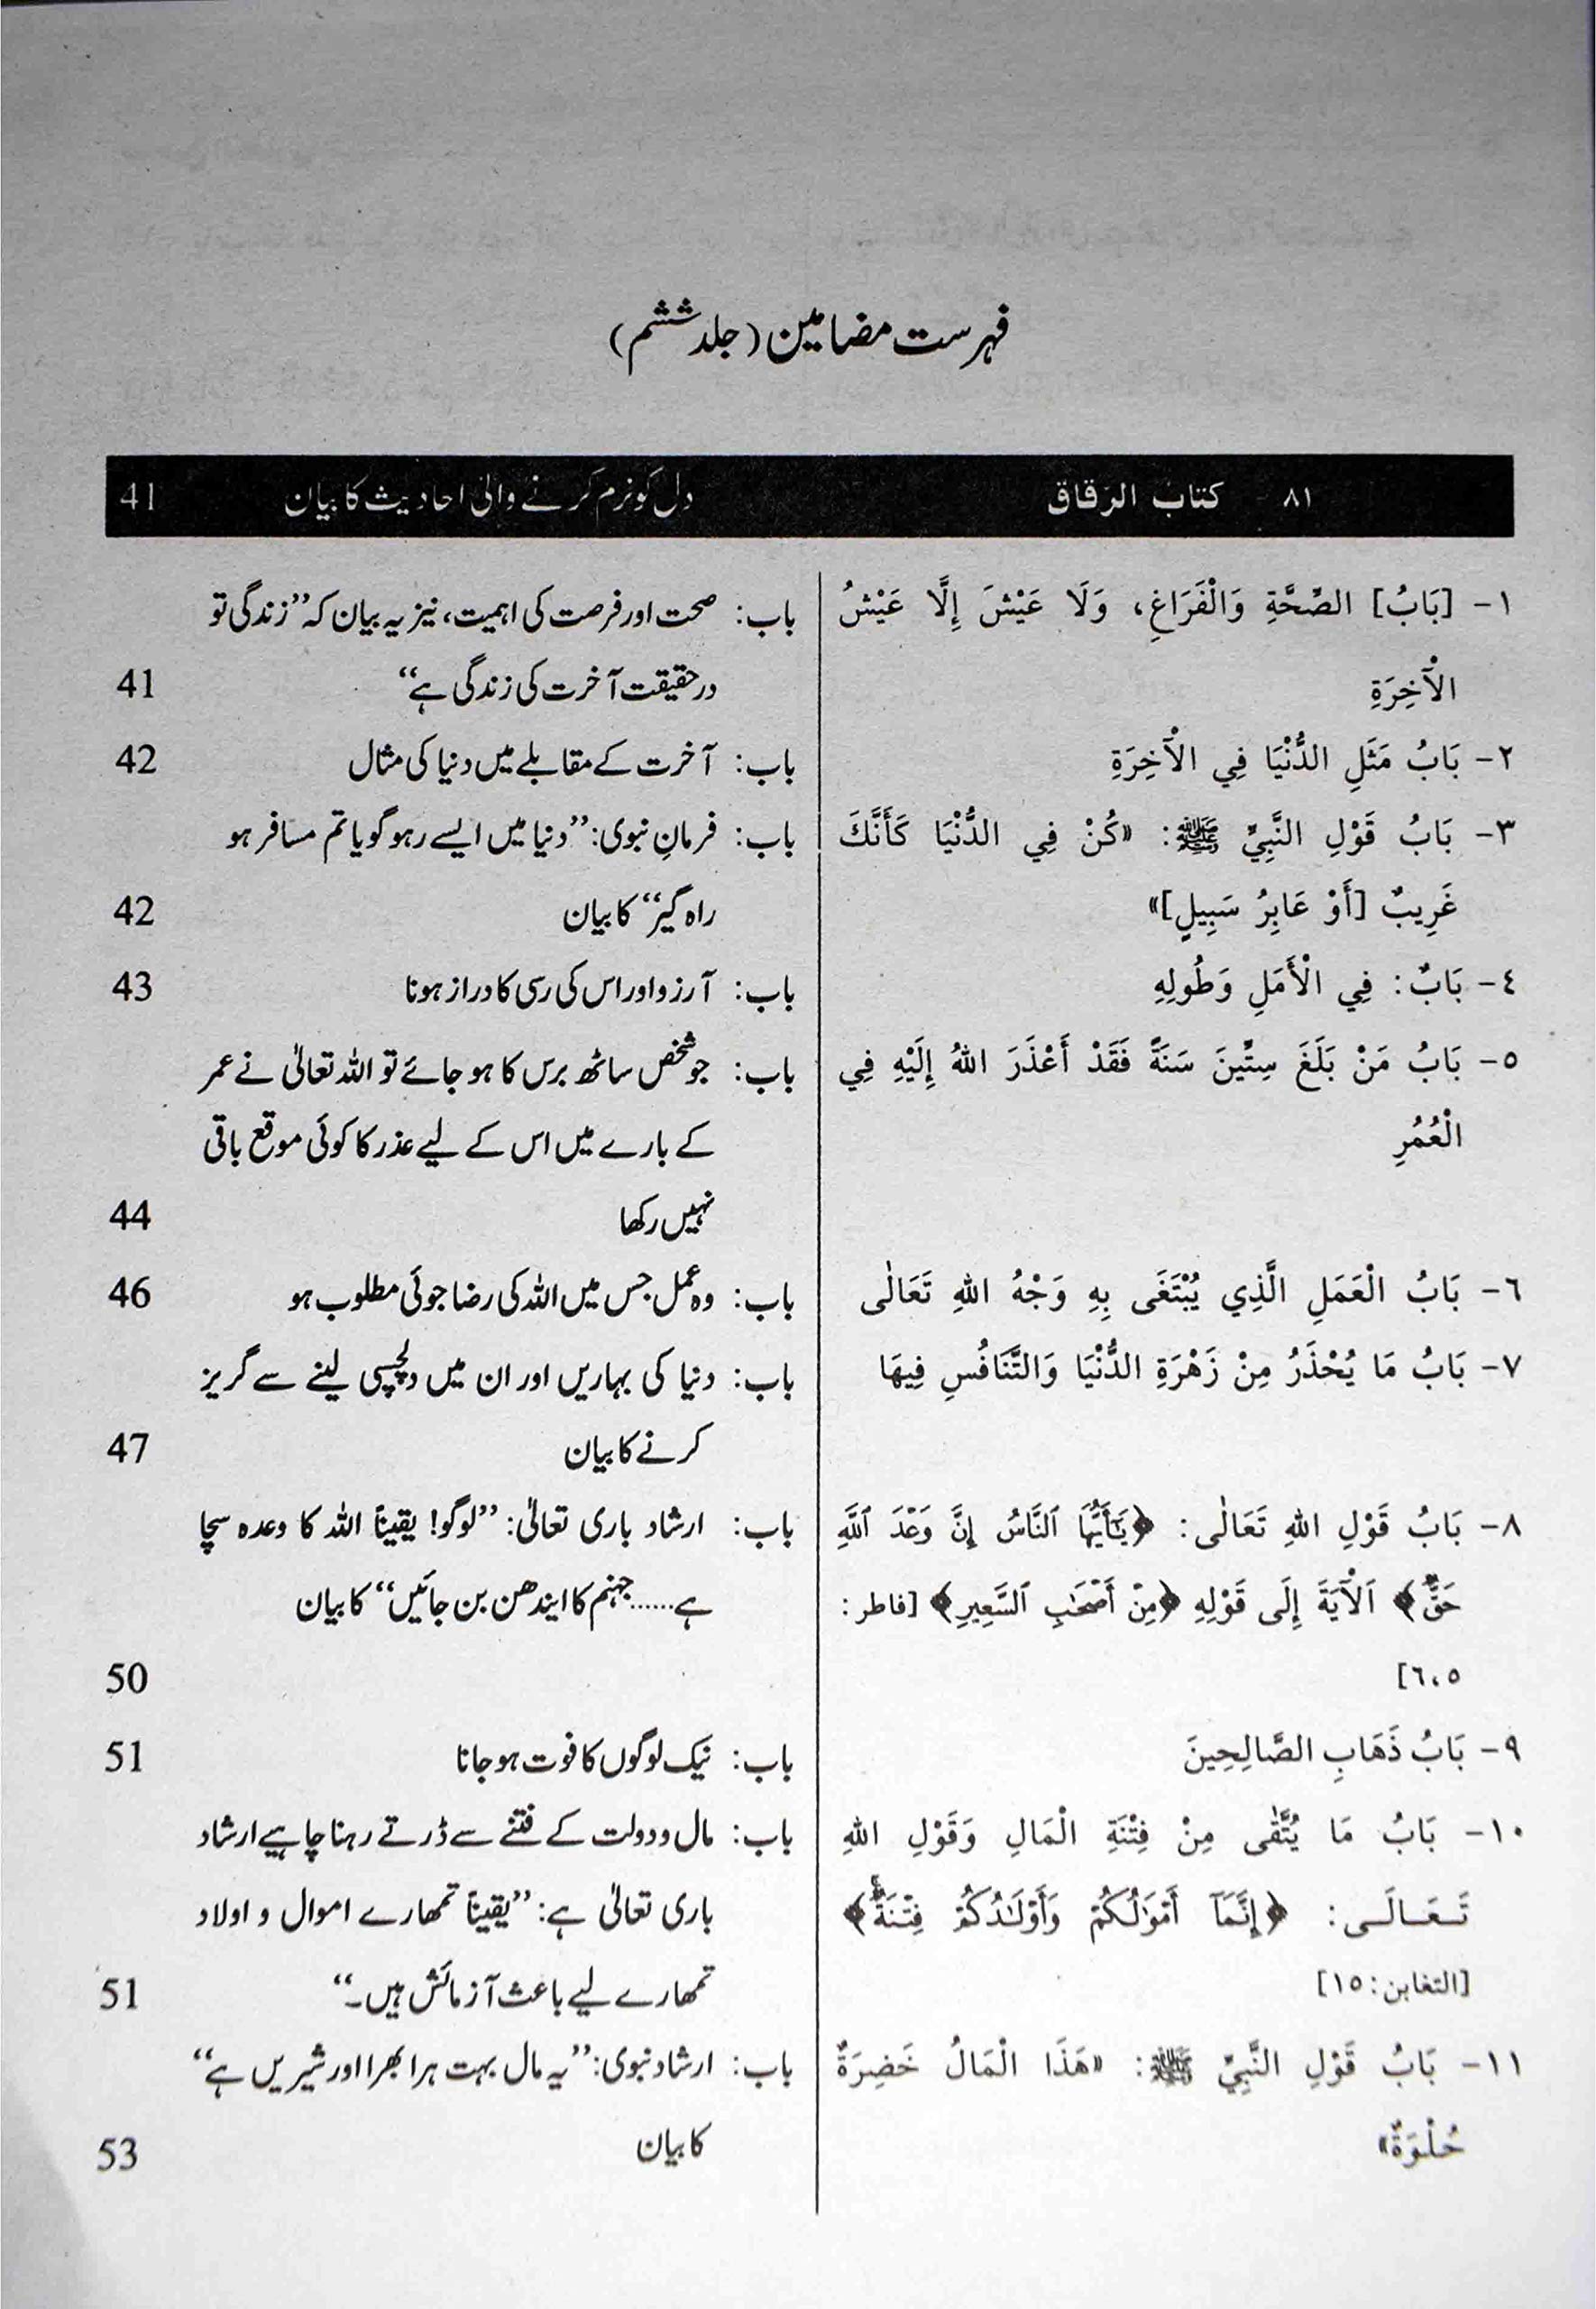 فہرست مضامین (جلد ششم)
٨١ - كتاب الرقاق دل کو نرم کرنے والی احادیث کا بیان 41
١- [بَابُ] الصِّحَّةِ وَالْفَرَاغِ، وَلَا عَيْشَ إِلَّا عَيْشُ
الْآخِرَةِ
باب: صحت اور فرصت کی اہمیت، نیز یہ بیان کہ ’’زندگی تو
درحقیقت آخرت کی زندگی ہے‘‘ 41
٢- بَابُ مَثَلِ الدُّنْيَا فِي الْآخِرَةِ
باب: آخرت کے مقابلے میں دنیا کی مثال 42
٣- بَابُ قَوْلِ النَّبِيِّ ﷺ: «كُنْ فِي الدُّنْيَا كَأَنَّكَ
غَرِيبٌ [أَوْ عَابِرُ سَبِيلٍ]»
باب: فرمانِ نبوی: ’’دنیا میں ایسے رہو گویا تم مسافر ہو
راہ گیر‘‘ کا بیان 42
٤- بَابٌ: فِي الْأَمَلِ وَطُولِهِ
باب: آرزو اور اس کی رسی کا دراز ہونا 43
٥- بَابُ مَنْ بَلَغَ سِتِّينَ سَنَةً فَقَدْ أَعْذَرَ اللهُ إِلَيْهِ فِي
الْعُمُرِ
باب: جو شخص ساٹھ برس کا ہو جائے تو اللہ تعالیٰ نے عمر
کے بارے میں اس کے لیے عذر کا کوئی موقع باقی
نہیں رکھا 44
٦- بَابُ الْعَمَلِ الَّذِي يُبْتَغَى بِهِ وَجْهُ اللهِ تَعَالٰى
باب: وہ عمل جس میں اللہ کی رضا جوئی مطلوب ہو 46
٧- بَابُ مَا يُحْذَرُ مِنْ زَهْرَةِ الدُّنْيَا وَالتَّنَافُسِ فِيهَا
باب: دنیا کی بہاریں اور ان میں دلچسپی لینے سے گریز
کرنے کا بیان 47
٨- بَابُ قَوْلِ اللهِ تَعَالٰى: ﴿يَٰٓأَيُّهَا ٱلنَّاسُ إِنَّ وَعْدَ ٱللَّهِ
حَقٌّ﴾ اَلْآيَةَ إِلَى قَوْلِهِ ﴿مِنْ أَصْحَٰبِ ٱلسَّعِيرِ﴾ [فاطر:
٦،٥]
باب: ارشاد باری تعالیٰ: ’’لوگو! یقیناً اللہ کا وعدہ سچا
ہے......جہنم کا ایندھن بن جائیں‘‘ کا بیان
50
٩- بَابُ ذَهَابِ الصَّالِحِينَ
باب: نیک لوگوں کا فوت ہو جانا 51
١٠- بَابُ مَا يُتَّقٰى مِنْ فِتْنَةِ الْمَالِ وَقَوْلِ اللهِ
تَعَالَى: ﴿إِنَّمَآ أَمْوَٰلُكُمْ وَأَوْلَٰدُكُمْ فِتْنَةٌ﴾
[التغابن: ١٥]
باب: مال و دولت کے فتنے سے ڈرتے رہنا چاہیے ارشاد
باری تعالیٰ ہے: ’’یقیناً تمھارے اموال و اولاد
تمھارے لیے باعث آزمائش ہیں۔‘‘ 51
١١- بَابُ قَوْلِ النَّبِيِّ ﷺ: «هَذَا الْمَالُ خَضِرَةٌ
حُلْوَةٌ»
باب: ارشاد نبوی: ’’یہ مال بہت ہرا بھرا اور شیریں ہے‘‘
کا بیان 53